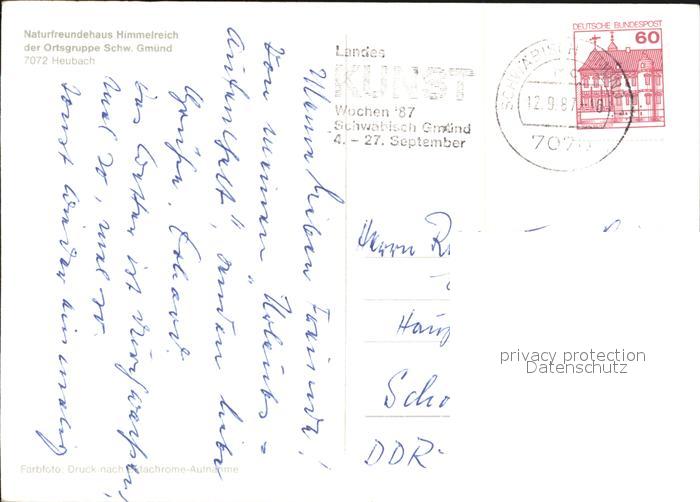 Naturfreundehaus Himmelreich
der Ortsgruppe Schw. Gmünd
7072 Heubach
Landes
KUNST
Wochen '87
Schwäbisch Gmünd
4. – 27. September
DEUTSCHE BUNDESPOST
60
SCHWÄBISCH GMÜND
12.9.87
7070
Meine lieben Freunde!
Von meinem "Urlaubs-
Aufenthalt" senden liebe
Grüße, Eduard.
Das Wetter ist
mal so, mal so.
sonst wieder einmalig
Herrn
Scho
DDR-
privacy protection
Datenschutz
Farbfoto: Druck nach Ektachrome-Aufnahme